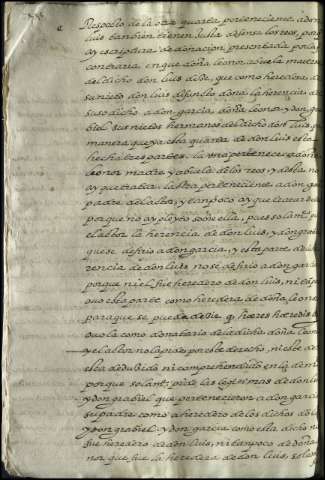 Respecto de la otra quarta perteneciente a don
luis tambien tienen justa defensa los reos, porq
ay escriptura de donacion presentada por la p
contraria en que doña leonor abuela materna
del dicho don luis dize, que como heredera de
su nieto don luis difunto dona la herencia del
suso dicho a don garcia doña leonor y don ga
briel sus nietos hermanos del dicho don luis, de
manera que ya esta quarta de don luis esta
hecha tres partes. la una pertenece a doña
leonor madre y abuela de los reos, y desta no
ay que tratar. la otra perteneciente a don g
padre del actor, y tampoco ay que tratar
porque no ay pleyto sobre ella, pues solamte p
el actor la herencia de don luis, y don gabriel
que se defirio a don garcia, y esta parte de la he
rencia de don luis no se defirio a don garcia
porque ni el fue heredero de don luis, ni tan po
ovo esta parte como heredero de doña leonor
para que se pueda dezir q heres haeredis
ovola como donatario de la dicha doña leonor
y el actor no la pide por este derecho, ni este de
esta deduzido ni comprehendido en la dema
porque solamte pide las legitimas de don luis
y don grabiel que pertenecieron a don garcia
su padre como a heredero de los dichos don
y don grabiel. y don garcia como esta dicho no
fue heredero de don luis, ni tampoco de doña
nor, que fue la heredera de don luis, solam